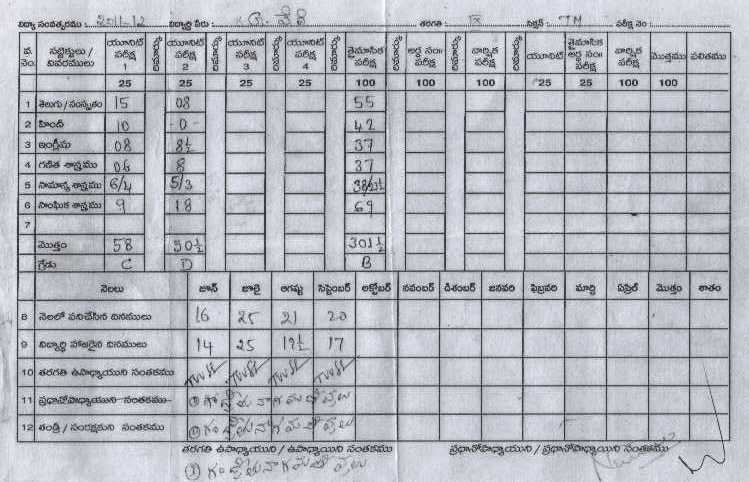 విద్యా సంవత్సరము : 2011-12 విద్యార్థి పేరు : తరగతి : IX సెక్షన్ : TM పరీక్ష నెం :
వ. నెం. సబ్జెక్టులు / వివరములు యూనిట్ పరీక్ష 1 యూనిట్ పరీక్ష 2 యూనిట్ పరీక్ష 3 యూనిట్ పరీక్ష 4 త్రైమాసిక పరీక్ష అర్ధ సం॥ పరీక్ష వార్షిక పరీక్ష యూనిట్ త్రైమాసిక అర్ధ సం॥ పరీక్ష వార్షిక పరీక్ష మొత్తము ఫలితము
25 25 25 25 100 100 100 25 25 100 100
1 తెలుగు / సంస్కృతం 15 08 55
2 హిందీ 10 -0- 42
3 ఇంగ్లీషు 08 8½ 37
4 గణిత శాస్త్రము 06 8 37
5 సామాన్య శాస్త్రము 6/4 5/3
6 సాంఘిక శాస్త్రము 9 18 69
7
మొత్తం 58 50½ 301½
గ్రేడు C D B
నెలలు జూన్ జూలై ఆగష్టు సెప్టెంబర్ అక్టోబర్ నవంబర్ డిశంబర్ జనవరి ఫిబ్రవరి మార్చి ఏప్రిల్ మొత్తం శాతం
8 నెలలో పనిచేసిన దినములు 16 25 21 20
9 విద్యార్థి హాజరైన దినములు 14 25 19½ 17
10 తరగతి ఉపాధ్యాయుని సంతకము
11 ప్రధానోపాధ్యాయుని సంతకము
12 తండ్రి / సంరక్షకుని సంతకము
తరగతి ఉపాధ్యాయుని / ఉపాధ్యాయిని సంతకము ప్రధానోపాధ్యాయుని / ప్రధానోపాధ్యాయిని సంతకము